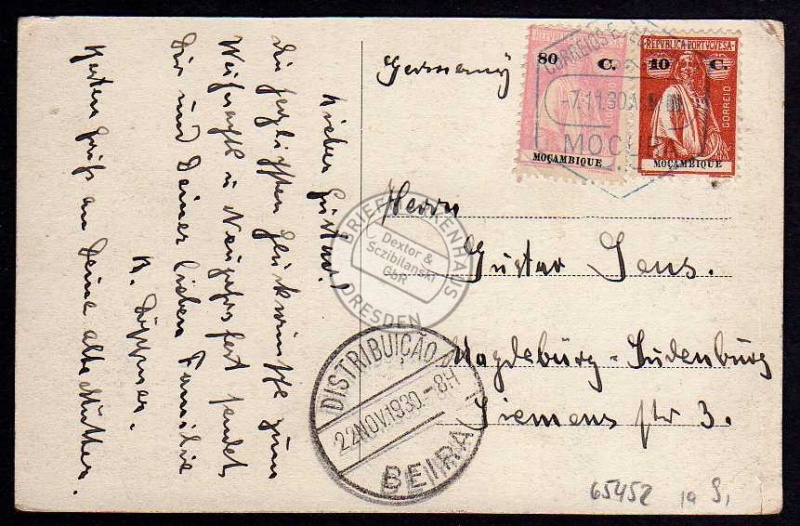 Lieber Gustav!
Die herzlichsten Glückwünsche zum
Weihnachts u Neujahrsfest sendet
Dir und Deiner lieben Familie
K. Töpper.
Herzten Gruß an Deine alte Mutter.
Germany
80 C.
MOÇAMBIQUE
REPUBLICA PORTUGUESA
10 C.
CORREIO
MOÇAMBIQUE
CORREIOS E
-7.11.30
Herrn
Gustav Jens.
Magdeburg-Sudenburg
Siemens str 3.
BRIEFMARKENHAUS
Dextor &
Sczibilanski
GbR
DRESDEN
DISTRIBUIÇÃO
22NOV1930.-8H
BEIRA
65452